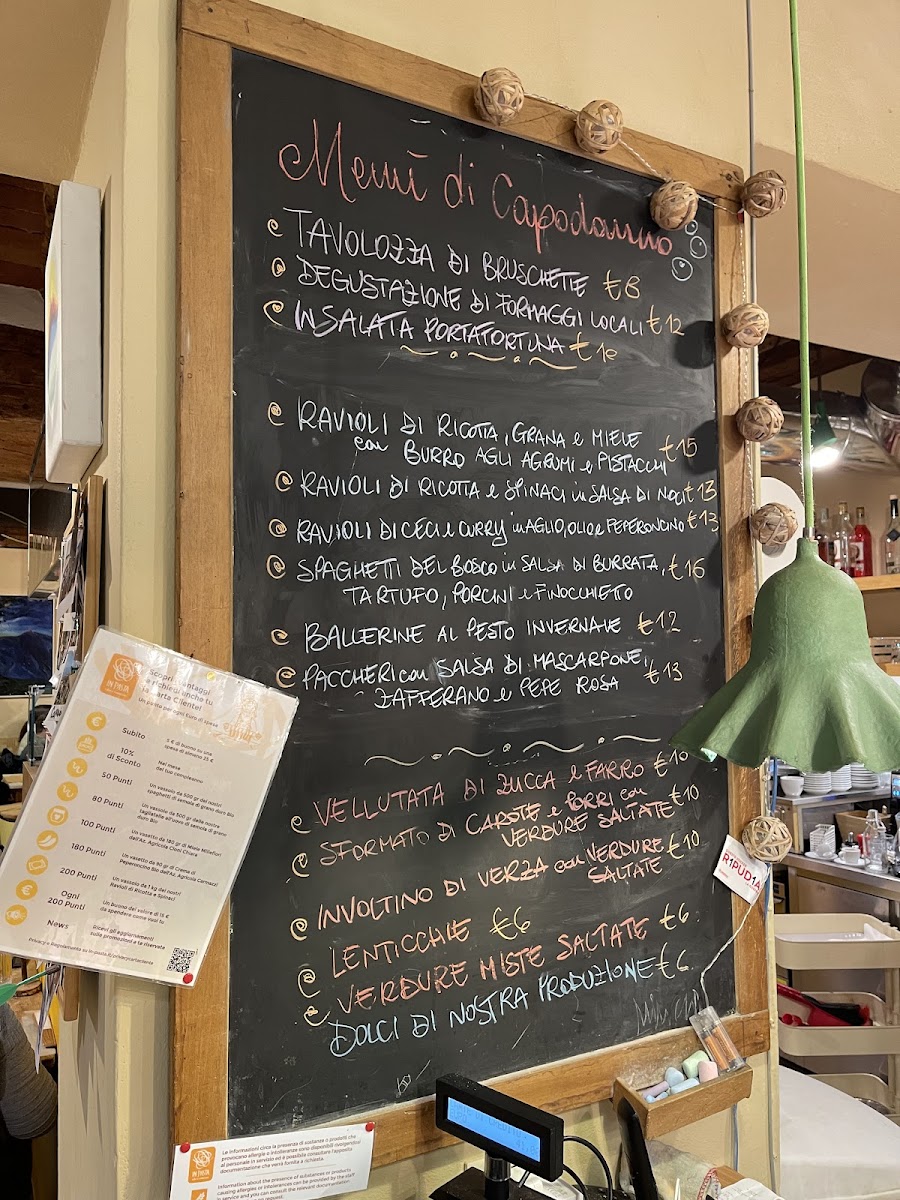 Menù di Capodanno
TAVOLOZZA DI BRUSCHETTE €8
DEGUSTAZIONE DI FORMAGGI LOCALI €12
INSALATA PORTAFORTUNA €10
RAVIOLI DI RICOTTA, GRANA e MIELE
con BURRO AGLI AGRUMI e PISTACCHI €15
RAVIOLI DI RICOTTA e SPINACI in SALSA DI NOCI €13
RAVIOLI DI CECI e CURRY in AGLIO, OLIO e PEPERONCINO €13
SPAGHETTI DEL BOSCO in SALSA DI BURRATA, €16
TARTUFO, PORCINI e FINOCCHIETTO
BALLERINE AL PESTO INVERNALE €12
PACCHERI con SALSA DI MASCARPONE, €13
ZAFFERANO e PEPE ROSA
VELLUTATA DI ZUCCA e FARRO €10
SFORMATO DI CAROTE e PORRI con
VERDURE SALTATE €10
INVOLTINO DI VERZA con VERDURE €10
SALTATE
LENTICCHIE €6
VERDURE MISTE SALTATE €6
DOLCI DI NOSTRA PRODUZIONE €6
IN PASTA
Scopri i vantaggi
e richiedi anche tu
la Carta Cliente!
Un punto per ogni Euro di spesa
Subito
5 € di buono su una
spesa di almeno 25 €
10%
di Sconto
Nel mese
del tuo compleanno
50 Punti
Un vassoio da 500 gr dei nostri
spaghetti di semola di grano duro Bio
80 Punti
Un vassoio da 500 gr delle nostre
tagliatelle all'uovo di semola di grano
duro Bio
100 Punti
Un vasetto da 180 gr di Miele Millefiori
dell'Az. Agricola Cioni Chiara
180 Punti
Un vasetto da 90 gr di Crema di
Peperoncino Bio dell'Az. Agricola Carmazzi
200 Punti
Un vassoio da 1 kg dei nostri
Ravioli di Ricotta e Spinaci
Ogni
200 Punti
Un buono del valore di 15 €
da spendere come vuoi tu
News
Ricevi gli aggiornamenti
sulle promozioni a te riservate
R1PUD1A
IN PASTA
Le informazioni circa la presenza di sostanze o prodotti che
provocano allergie o intolleranze sono disponibili rivolgendosi
al personale in servizio ed è possibile consultare l'apposita
documentazione che verrà fornita a richiesta.
Information about the presence of substances or products
causing allergies or intolerances can be provided by the staff
and you can consult the relevant documentation